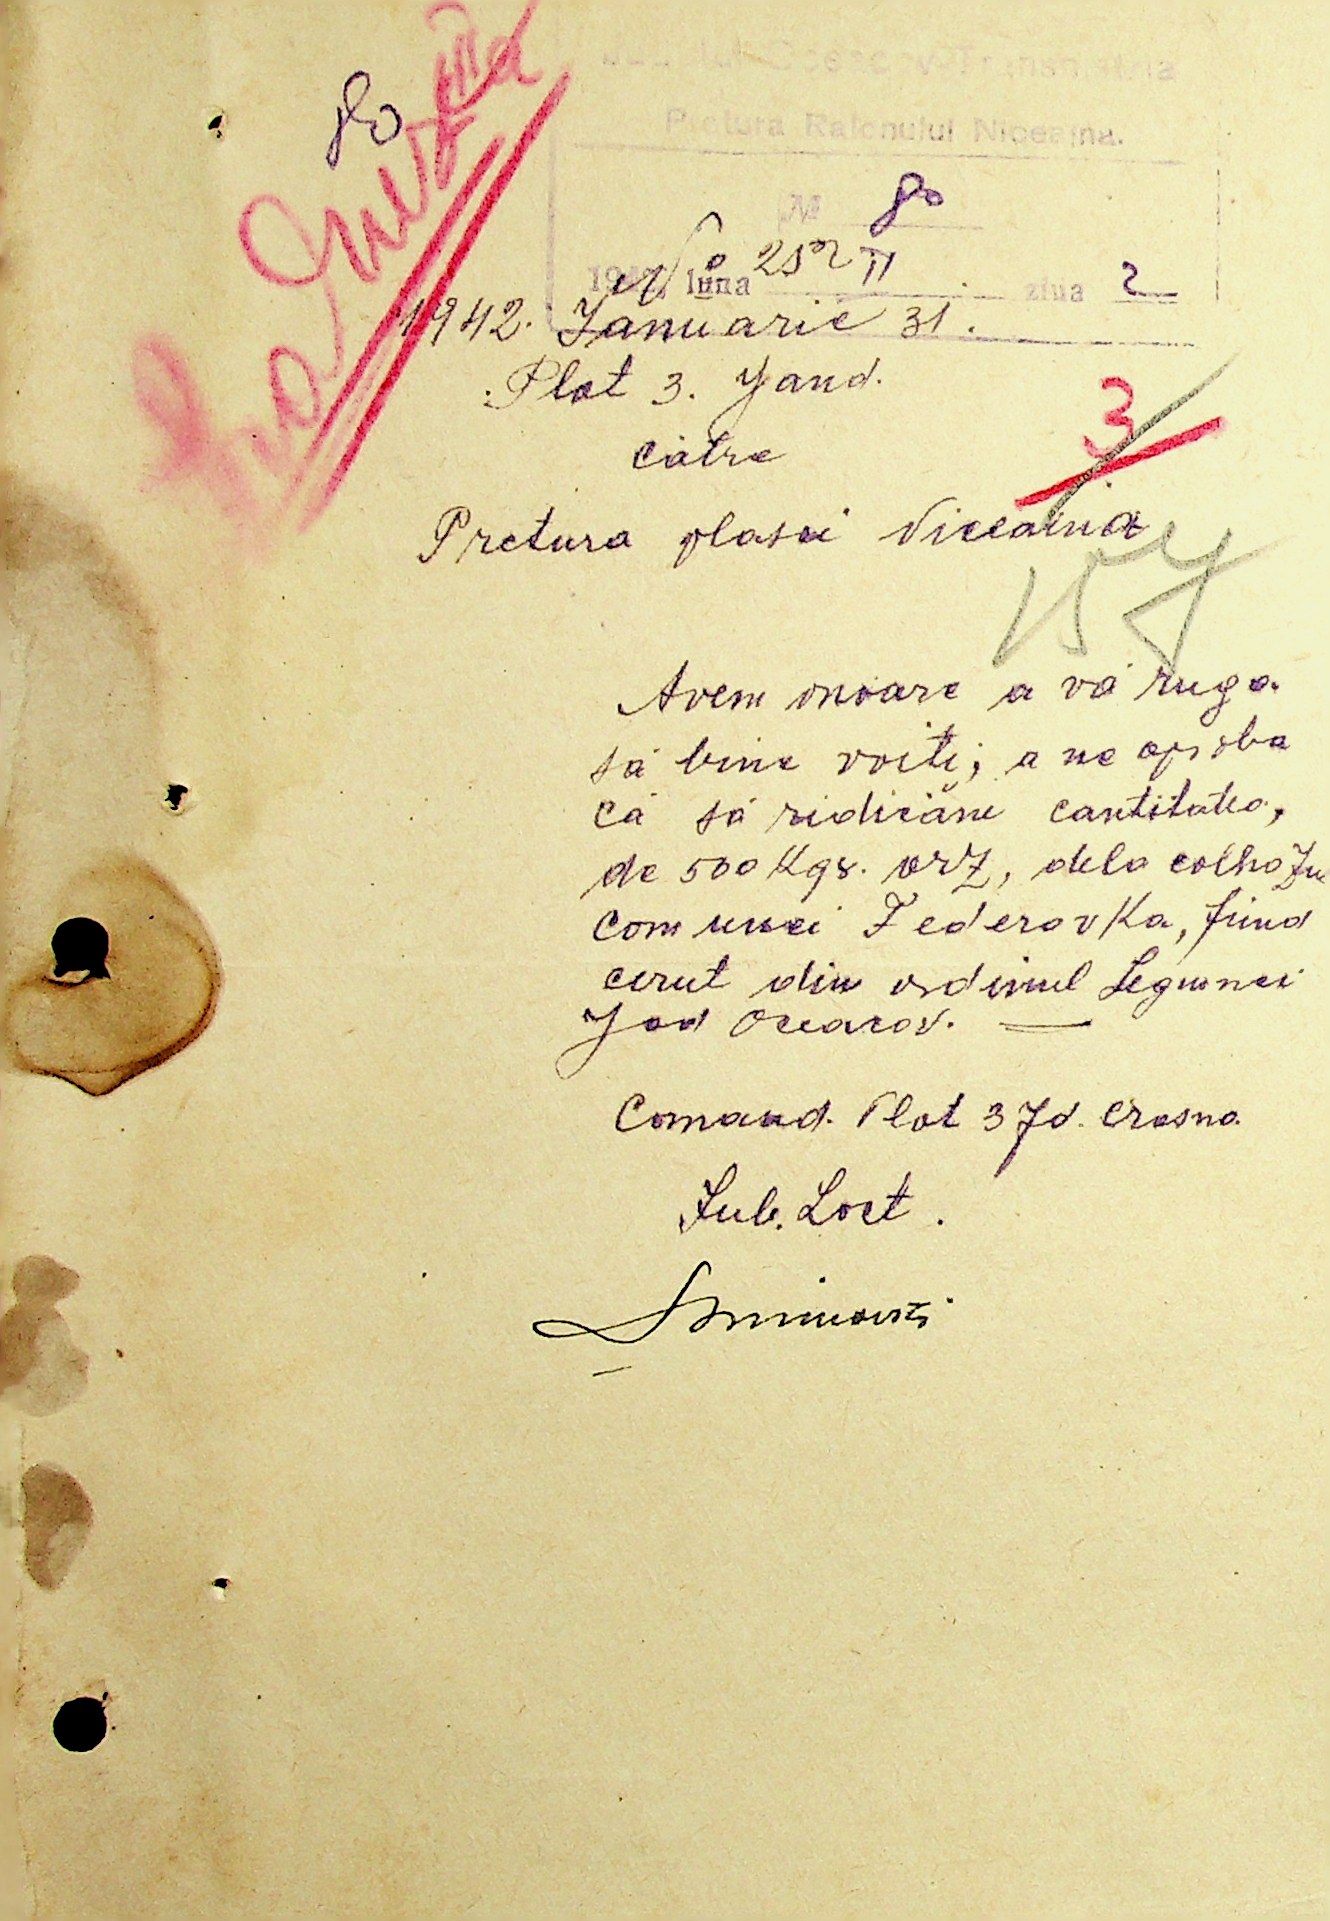 80
Pretura Raionului Niceaina.
80
No 25
1942, luna II ziua 2
1942. Ianuarie 31.
Plot 3. Jand.
către
3
Pretura plasei Niceaina
157
Avem onoare a vă ruga.
să bine voiti; a ne aproba
că să ridicăm cantitatea,
de 500 Kgs. orz, dela colhozu
comunei Federovka, fiind
cerut din ordinul Legiunei
Jand Oceacov.
Comand. Plot 3 Jd. Crasna
Sub. Loct.